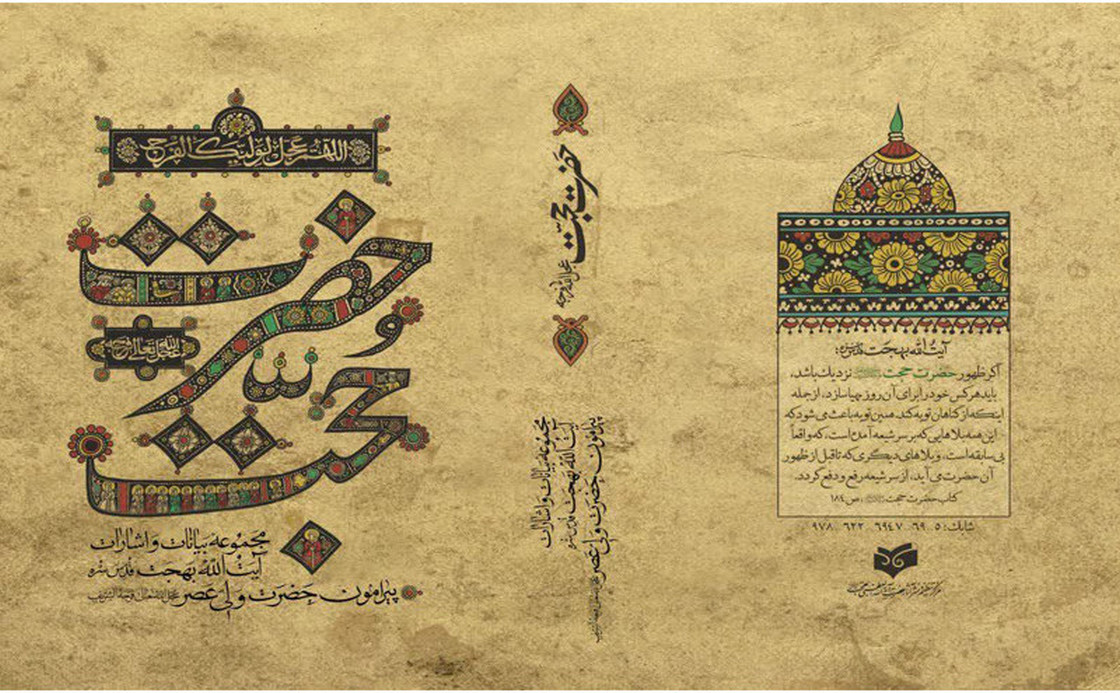 اللهم عجل لولیک الفرج
حضرت
حجت
عجل الله تعالی فرجه
مجموعه بیانات و اشارات
آیت الله بهجت قدس سره
پیرامون حضرت ولی عصر عجل الله تعالی فرجه الشریف
حضرت حجت
عجل الله فرجه
مجموعه بیانات و اشارات
آیت الله بهجت قدس سره
پیرامون حضرت ولی عصر عجل الله تعالی فرجه الشریف
آیت الله بهجت قدس سره:
اگر ظهور حضرت حجت نزدیک باشد،
باید هر کس خود را برای آن روز مهیا سازد، از جمله
اینکه از گناهان توبه کند. همین توبه باعث می شود که
این همه بلاهایی که بر سر شیعه آمده است، که واقعاً
بی سابقه است، و بلاهای دیگری که تا قبل از ظهور
آن حضرت می آید، از سر شیعه رفع و دفع گردد.
کتاب حضرت حجت، ص ۱۸۴
شابک: ۵ ۰ ۶۹ ۶۹۴۷ ۶۲۲ ۹۷۸